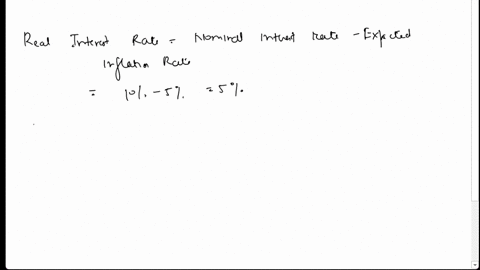 Real Interest Rate = Nominal Interest rate - Expected
Inflation Rate
= 10% - 5% = 5%.